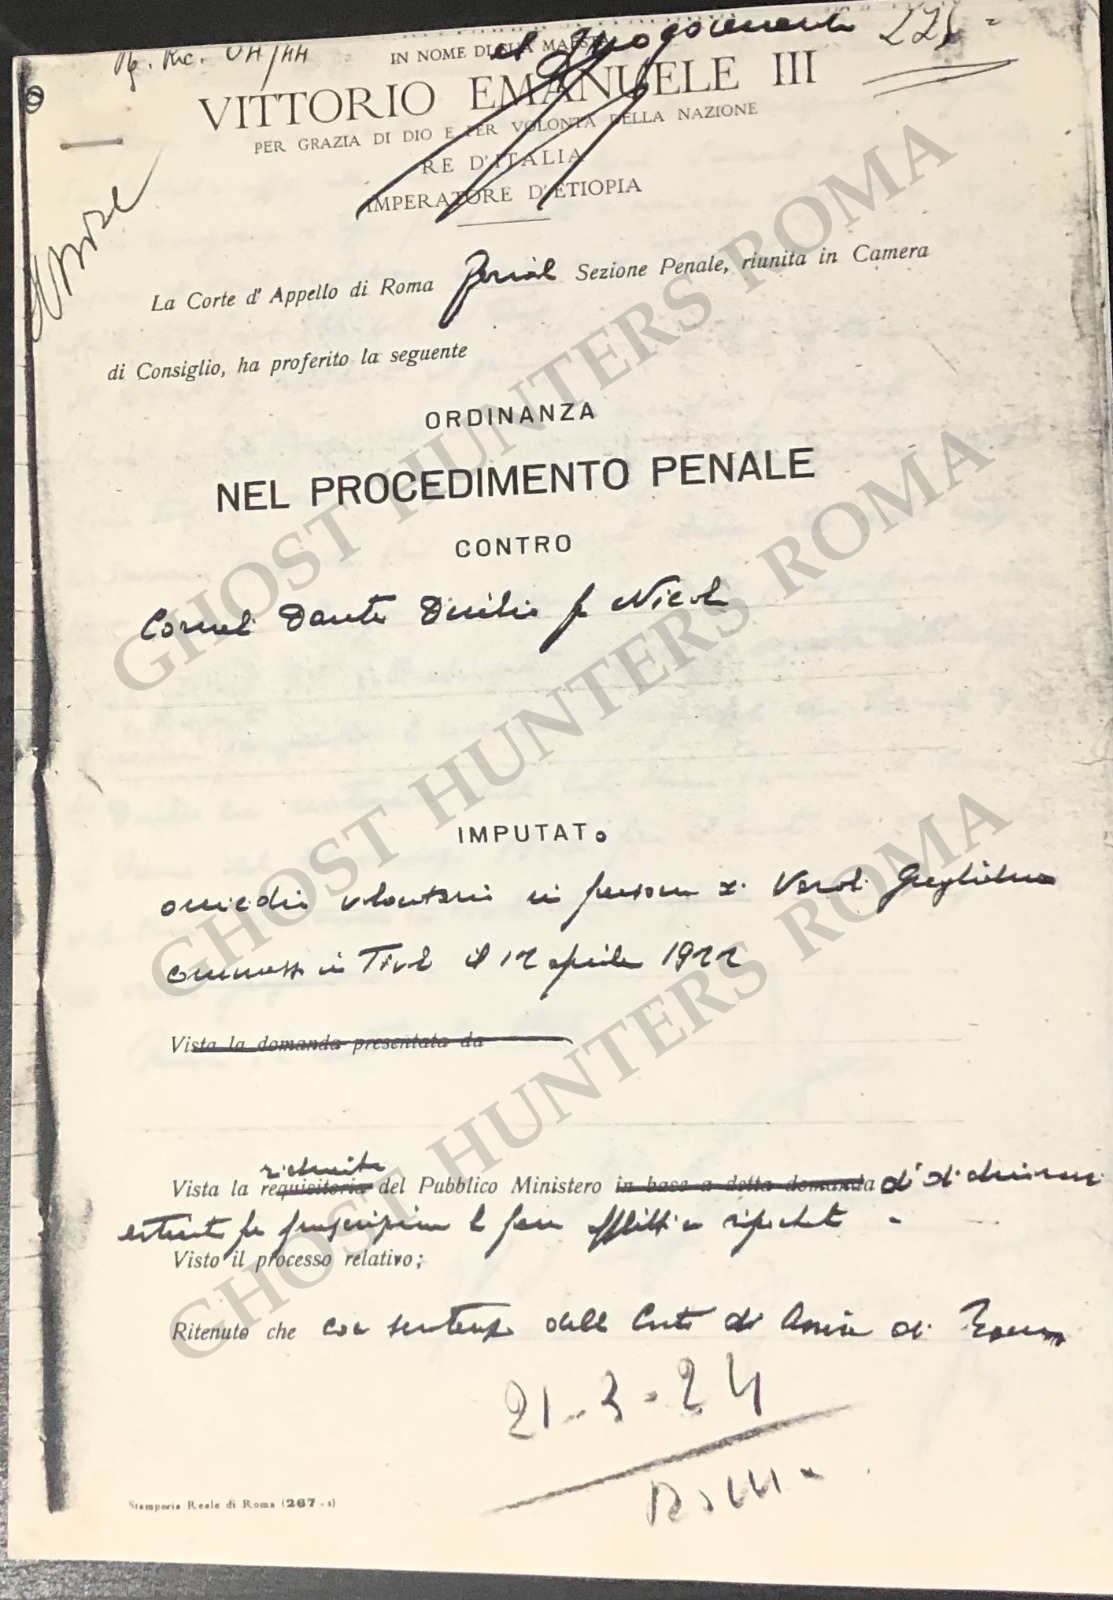 IN NOME DI SUA MAESTÀ 225
VITTORIO EMANUELE III
PER GRAZIA DI DIO E PER VOLONTÀ DELLA NAZIONE
RE D'ITALIA
IMPERATORE D'ETIOPIA
La Corte d'Appello di Roma Sezione Penale, riunita in Camera
di Consiglio, ha proferito la seguente
ORDINANZA
NEL PROCEDIMENTO PENALE
CONTRO
Corneli Dante Duilio fu Nicola
IMPUTATo
omicidio volontario in persona di Veroli Guglielmo
commesso in Tivoli il 12 aprile 1922
Vista la domanda presentata da
richiesta
Vista la requisitoria del Pubblico Ministero in base a detta domanda di dichiarare
estinta per prescrizione la pena inflitta
Visto il processo relativo;
Ritenuto che con sentenza della Corte di Assise di Roma
21-3-24
Roma
Stamperia Reale di Roma (267-a)
GHOST HUNTERS ROMA
GHOST HUNTERS ROMA
GHOST HUNTERS ROMA